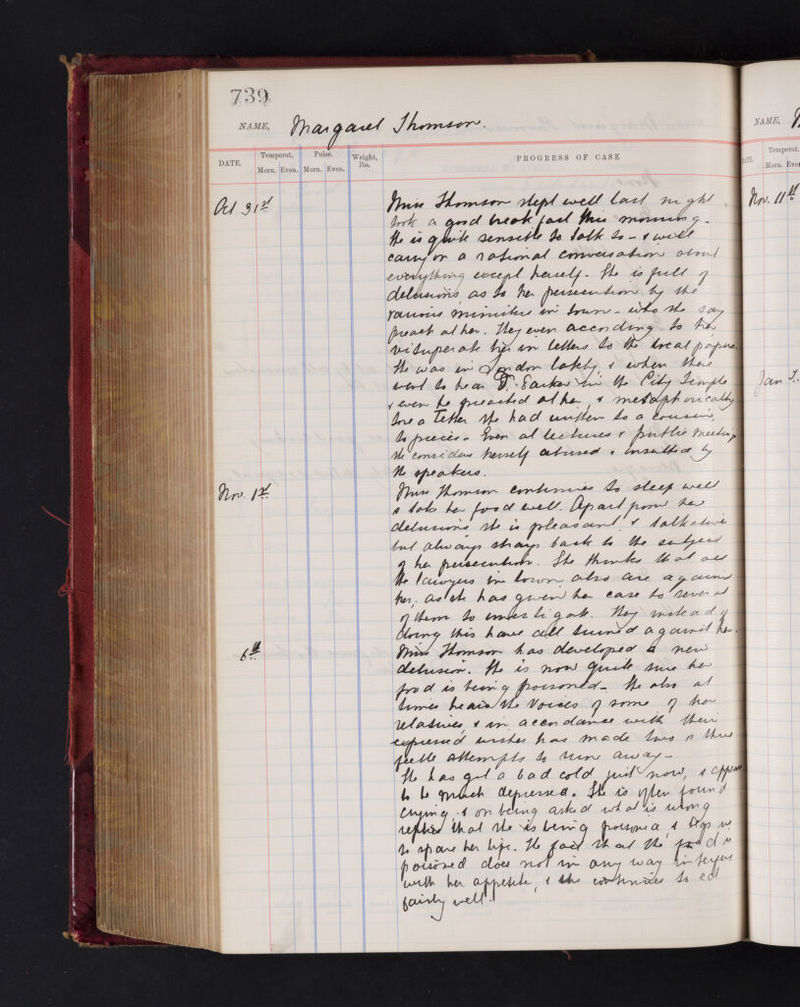 739
NAME, Margaret Thomson.
DATE. Temperat. Pulse. Weight, lbs. PROGRESS OF CASE
Morn. Even. Morn. Even.
Oct 31st Miss Thomson slept well last night
took a good breakfast this morning.
She is quite sensible to talk to - & will
carry on a rational conversation about
everything except herself. She is full of
delusions as to her persecution by the
various ministers in town - who she say
preach at her. They even according to her
vituperate her in letters to the local papers.
She was in London lately & when there
went to hear Dr. Parker in the City Temple
& even he preached at her, & metaphorically
tore a letter she had written to a cousin
to pieces. Even at lectures & public meetings
she considers herself abused & insulted by
the speakers.
Nov. 1st Miss Thomson continues to sleep well
& take her food well. Apart from her
delusions she is pleasant & talkative
but always strays back to the subject
of her persecution. She thinks that all
the lawyers in town also are against
her, as she has given her case to several
of them to investigate. They instead of
doing this have all turned against her.
6th Miss Thomson has developed a new
delusion. She is now quite sure her
food is being poisoned. She also at
times hears the voices of some of her
relatives, & in accordance with their
expressed wishes has made two or three
feeble attempts to run away -
She has got a bad cold just now, & appears
to be much depressed. She is often found
crying & on being asked what is wrong
replies that she is being poisoned & begs us
to spare her life. The fact that the food is
poisoned does not in any way interfere
with her appetite, & she continues to eat
fairly well.
NAME,
Temperat.
Morn. Even
Nov. 11th
Jan